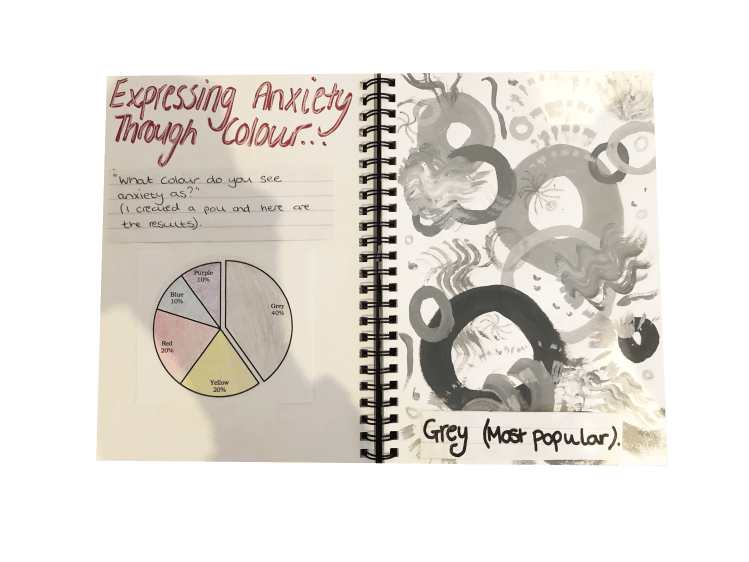 Expressing Anxiety
Through Colour...
"What colour do you see
anxiety as?"
(I created a poll and here are
the results).
Purple
10%
Grey
40%
Blue
10%
Red
20%
Yellow
20%
Grey (Most popular).